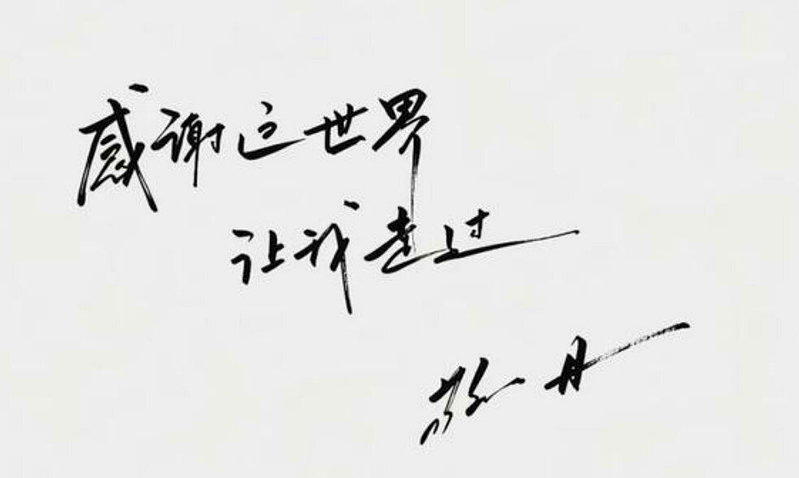 感谢这世界
让我走过
丹